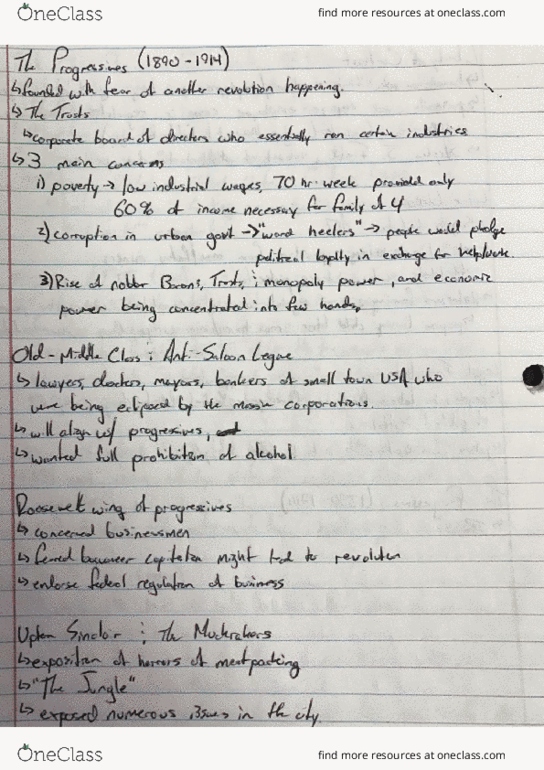 OneClass
find more resources at oneclass.com
The Progressives (1890-1914)
↳founded with fear of another revolution happening.
↳The Trusts
↳corporate board of directors who essentially ran certain industries
↳3 main concerns
1) poverty → low industrial wages, 70 hr. week provided only
60% of income necessary for family of 4
2) corruption in urban govt → "ward heelers" → people would pledge
political loyalty in exchange for help/work.
3) Rise of robber Barons, Trusts, & monopoly power, and economic
power being concentrated into few hands,
Old-Middle Class & Anti-Saloon League
↳lawyers, doctors, mayors, bankers of small town USA who
were being eclipsed by the massive corporations.
↳will align w/ progressives,
↳wanted full prohibition of alcohol
Roosevelt wing of progressives
↳concerned businessmen
↳feared buccaneer capitalism might lead to revolution
↳endorse federal regulation of business
Upton Sinclair & The Muckrakers
↳exposition of horrors of meatpacking
↳"The Jungle"
↳exposed numerous issues in the city.
OneClass
find more resources at oneclass.com